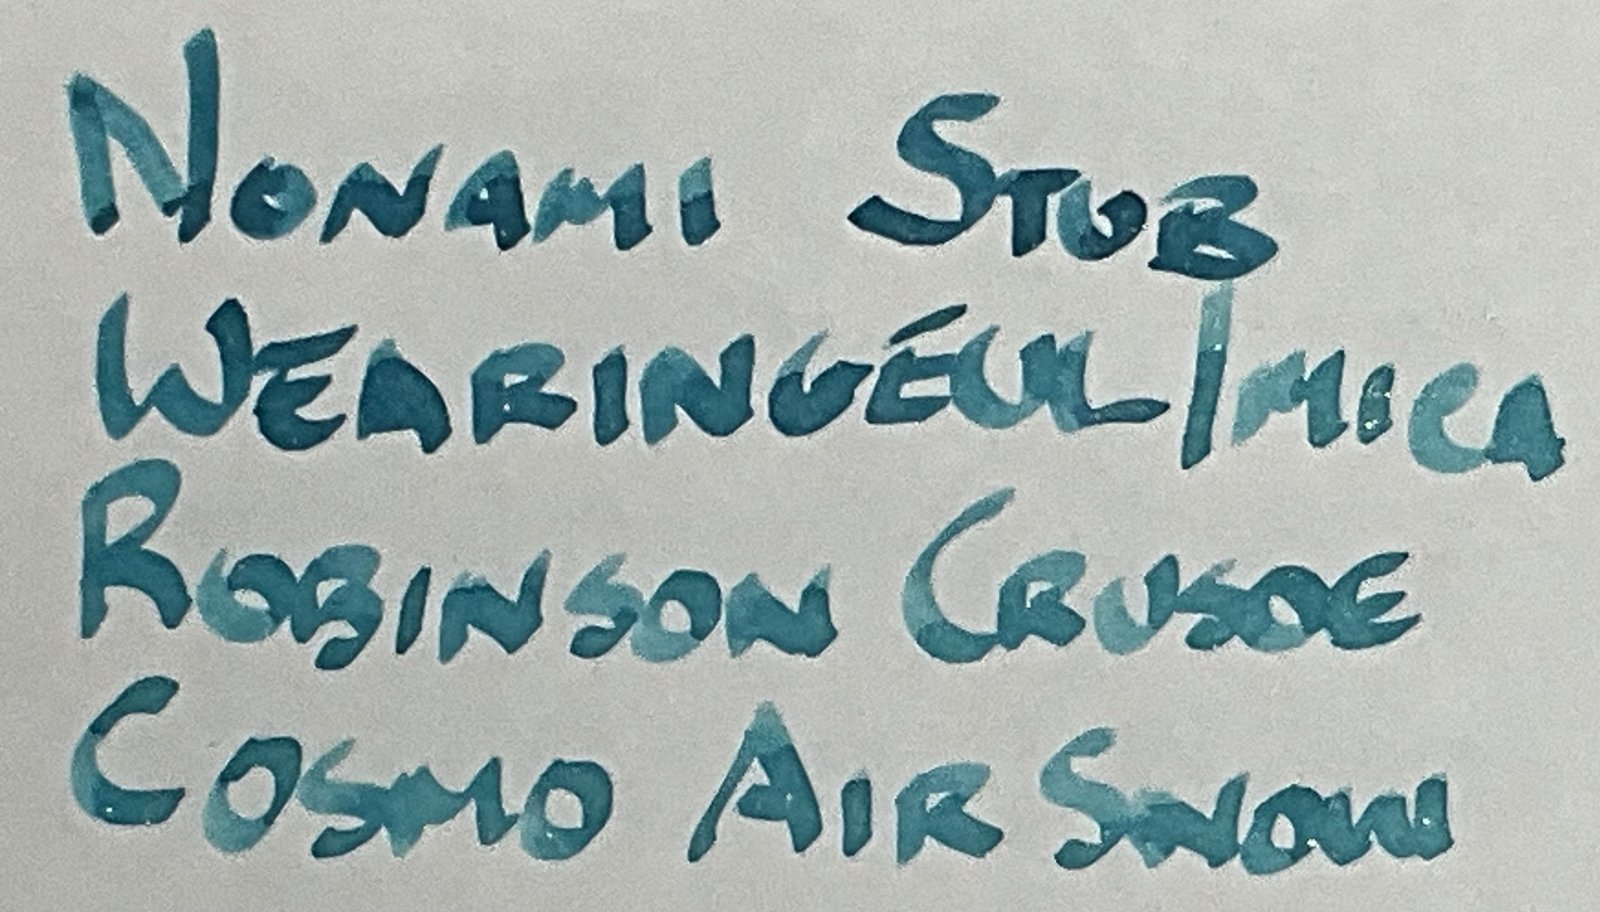 Nonami Stub
Wearingéul/mica
Robinson Crusoe
Cosmo Air Snow